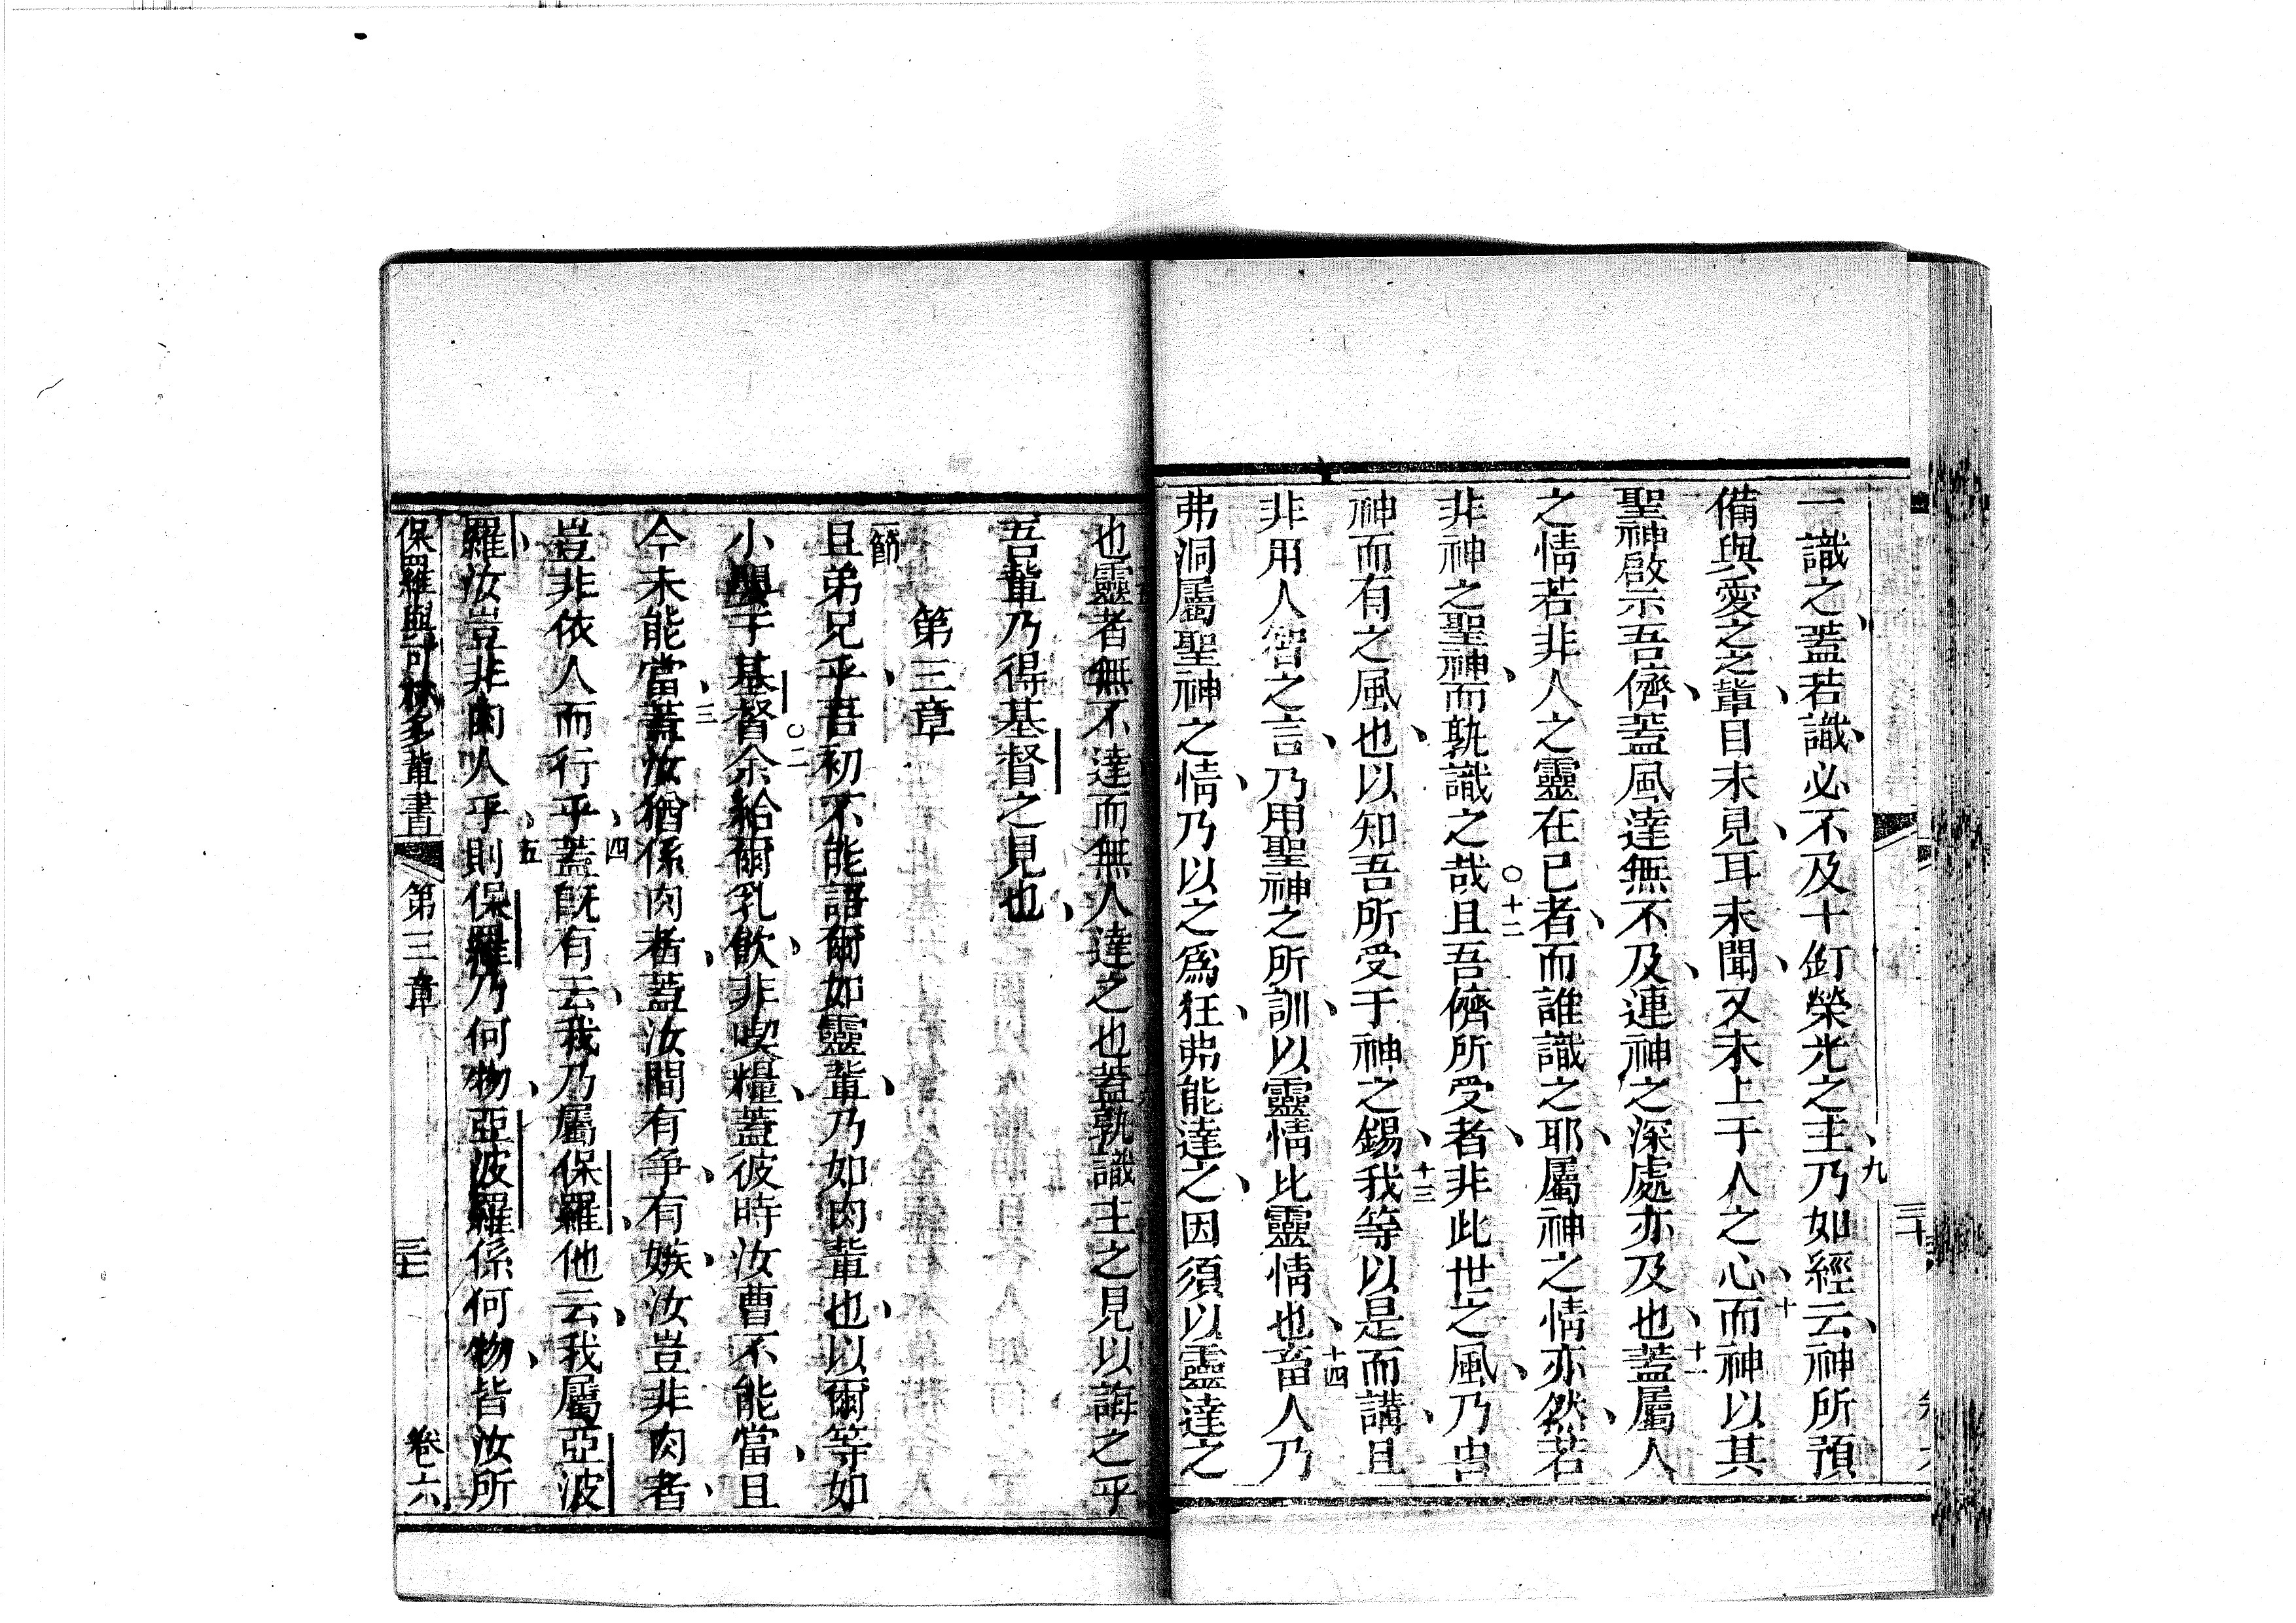 一識之蓋若識必不及十釘榮光之主九乃如經云神所預
備與愛之之輩目未見耳未聞又未上于人之心十而神以其
聖神啟示吾儕蓋風達無不及連神之深處亦及也十一蓋屬人
之情若非人之靈在已者而誰識之耶屬神之情亦然若
非神之聖神而孰識之哉○十二且吾儕所受者非此世之風乃由
神而有之風也以知吾所受于神之錫十三我等以是而講且
非用人智之言乃用聖神之所訓以靈情比靈情也十四畜人乃
弗洞屬聖神之情乃以之為狂弗能達之因須以靈達之
也靈者無不達而無人達之也蓋孰識主之見以誨之乎
吾輩乃得基督之見也
第三章
一節且弟兄乎吾初不能語爾如靈輩乃如肉輩也以爾等如
小嬰于基督○二余給爾乳飲非喫糧蓋彼時汝曹不能當且
今未能當三蓋汝猶係肉者蓋汝間有爭有嫉汝豈非肉者
豈非依人而行乎四蓋既有云我乃屬保羅他云我屬亞波
羅汝豈非肉人乎五則保羅乃何物亞波羅係何物皆汝所
保羅與可林多輩書 第三章 卷六